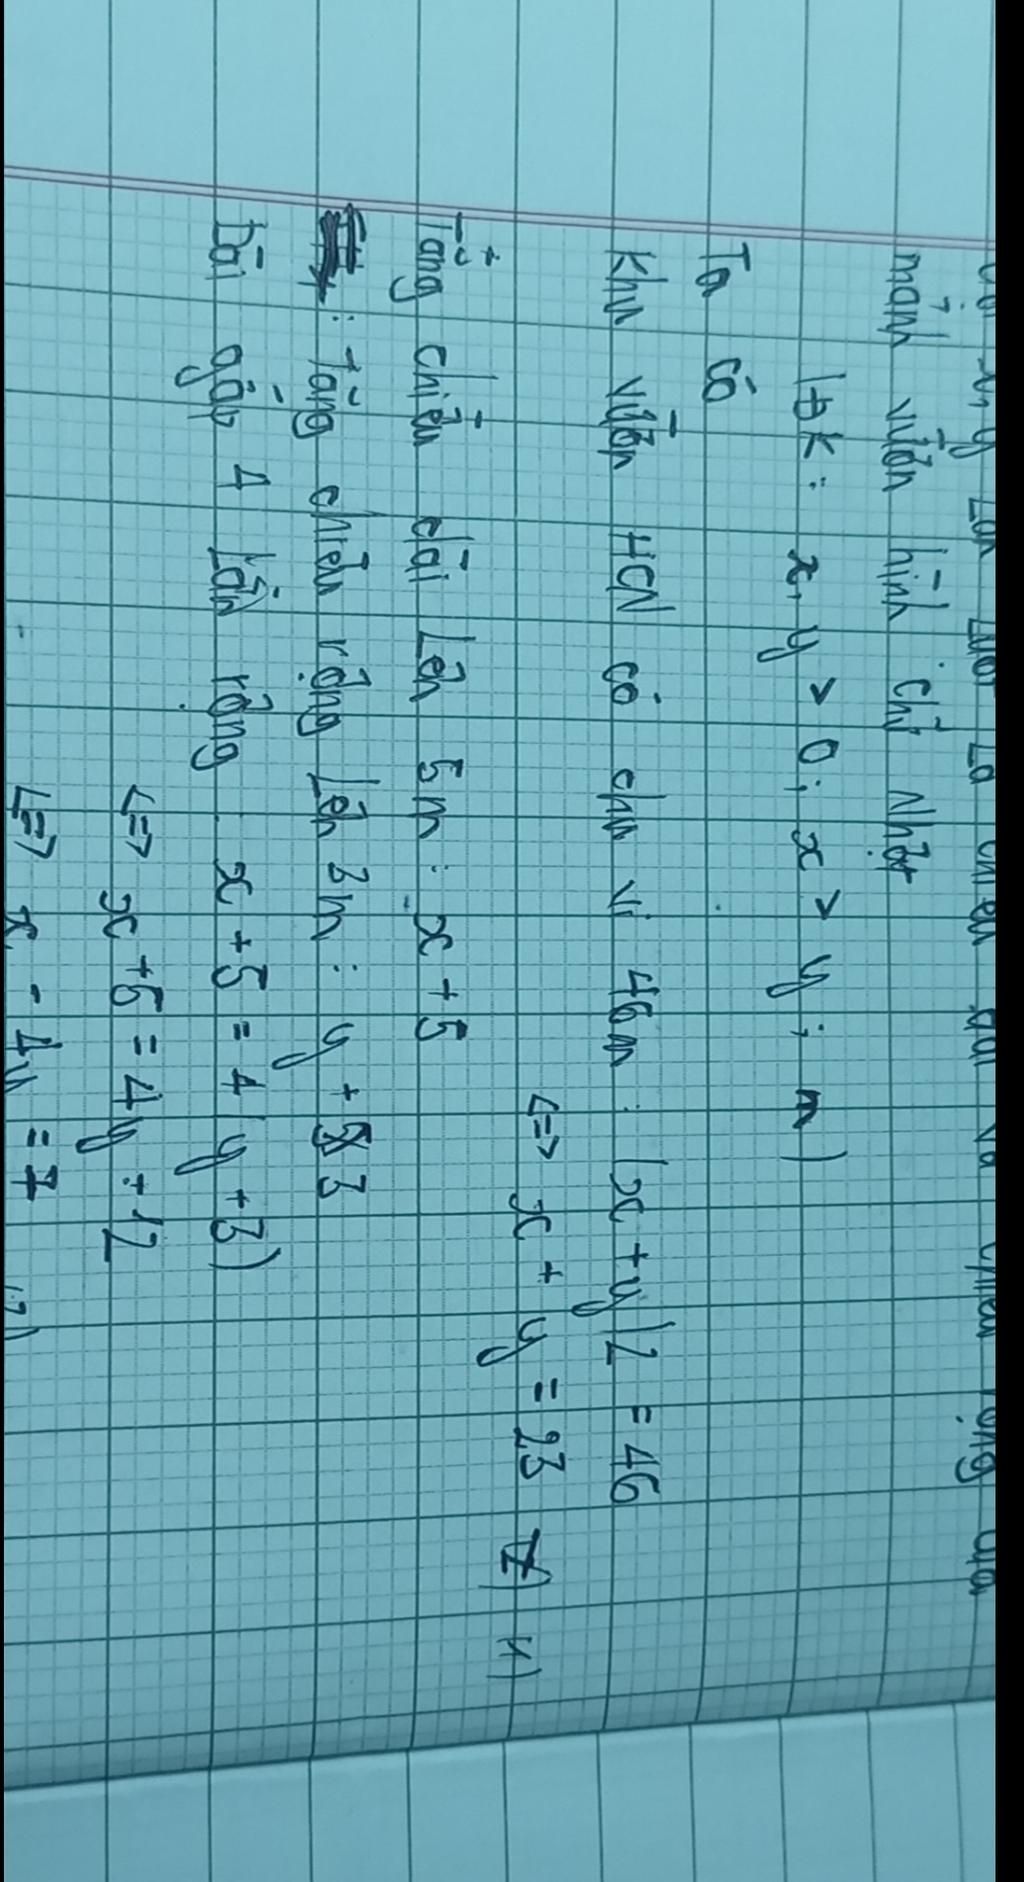 x, y lần lượt là chiều dài và chiều rộng của
mảnh vườn hình chữ nhật
(ĐK: x, y > 0; x > y; m)
Ta có
Khu vườn HCN có chu vi 46m: (x + y)2 = 46
<=> x + y = 23 (1)
+ Tăng chiều dài lên 5m: x + 5
: Tăng chiều rộng lên 3m: y + 3
Dài gấp 4 lần rộng: x + 5 = 4(y + 3)
<=> x + 5 = 4y + 12
<=> x - 4y = 7 (2)